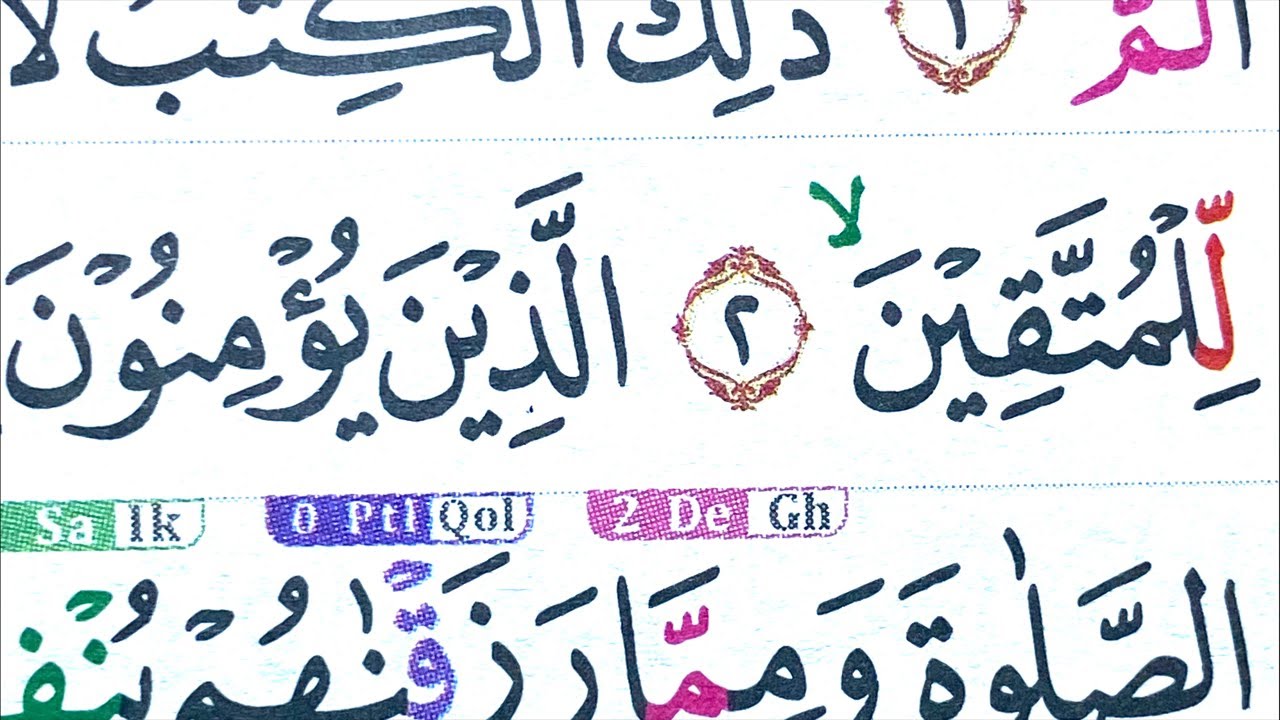 الٓمّٓ ١ ذٰلِكَ الْكِتٰبُ لَا
لِّلْمُتَّقِيْنَ ۙ ٢ الَّذِيْنَ يُؤْمِنُوْنَ
2 De Gh 0 Ptl Qol Sa Ik
الصَّلٰوةَ وَمِمَّا رَزَقْنٰهُمْ يُنْفِ